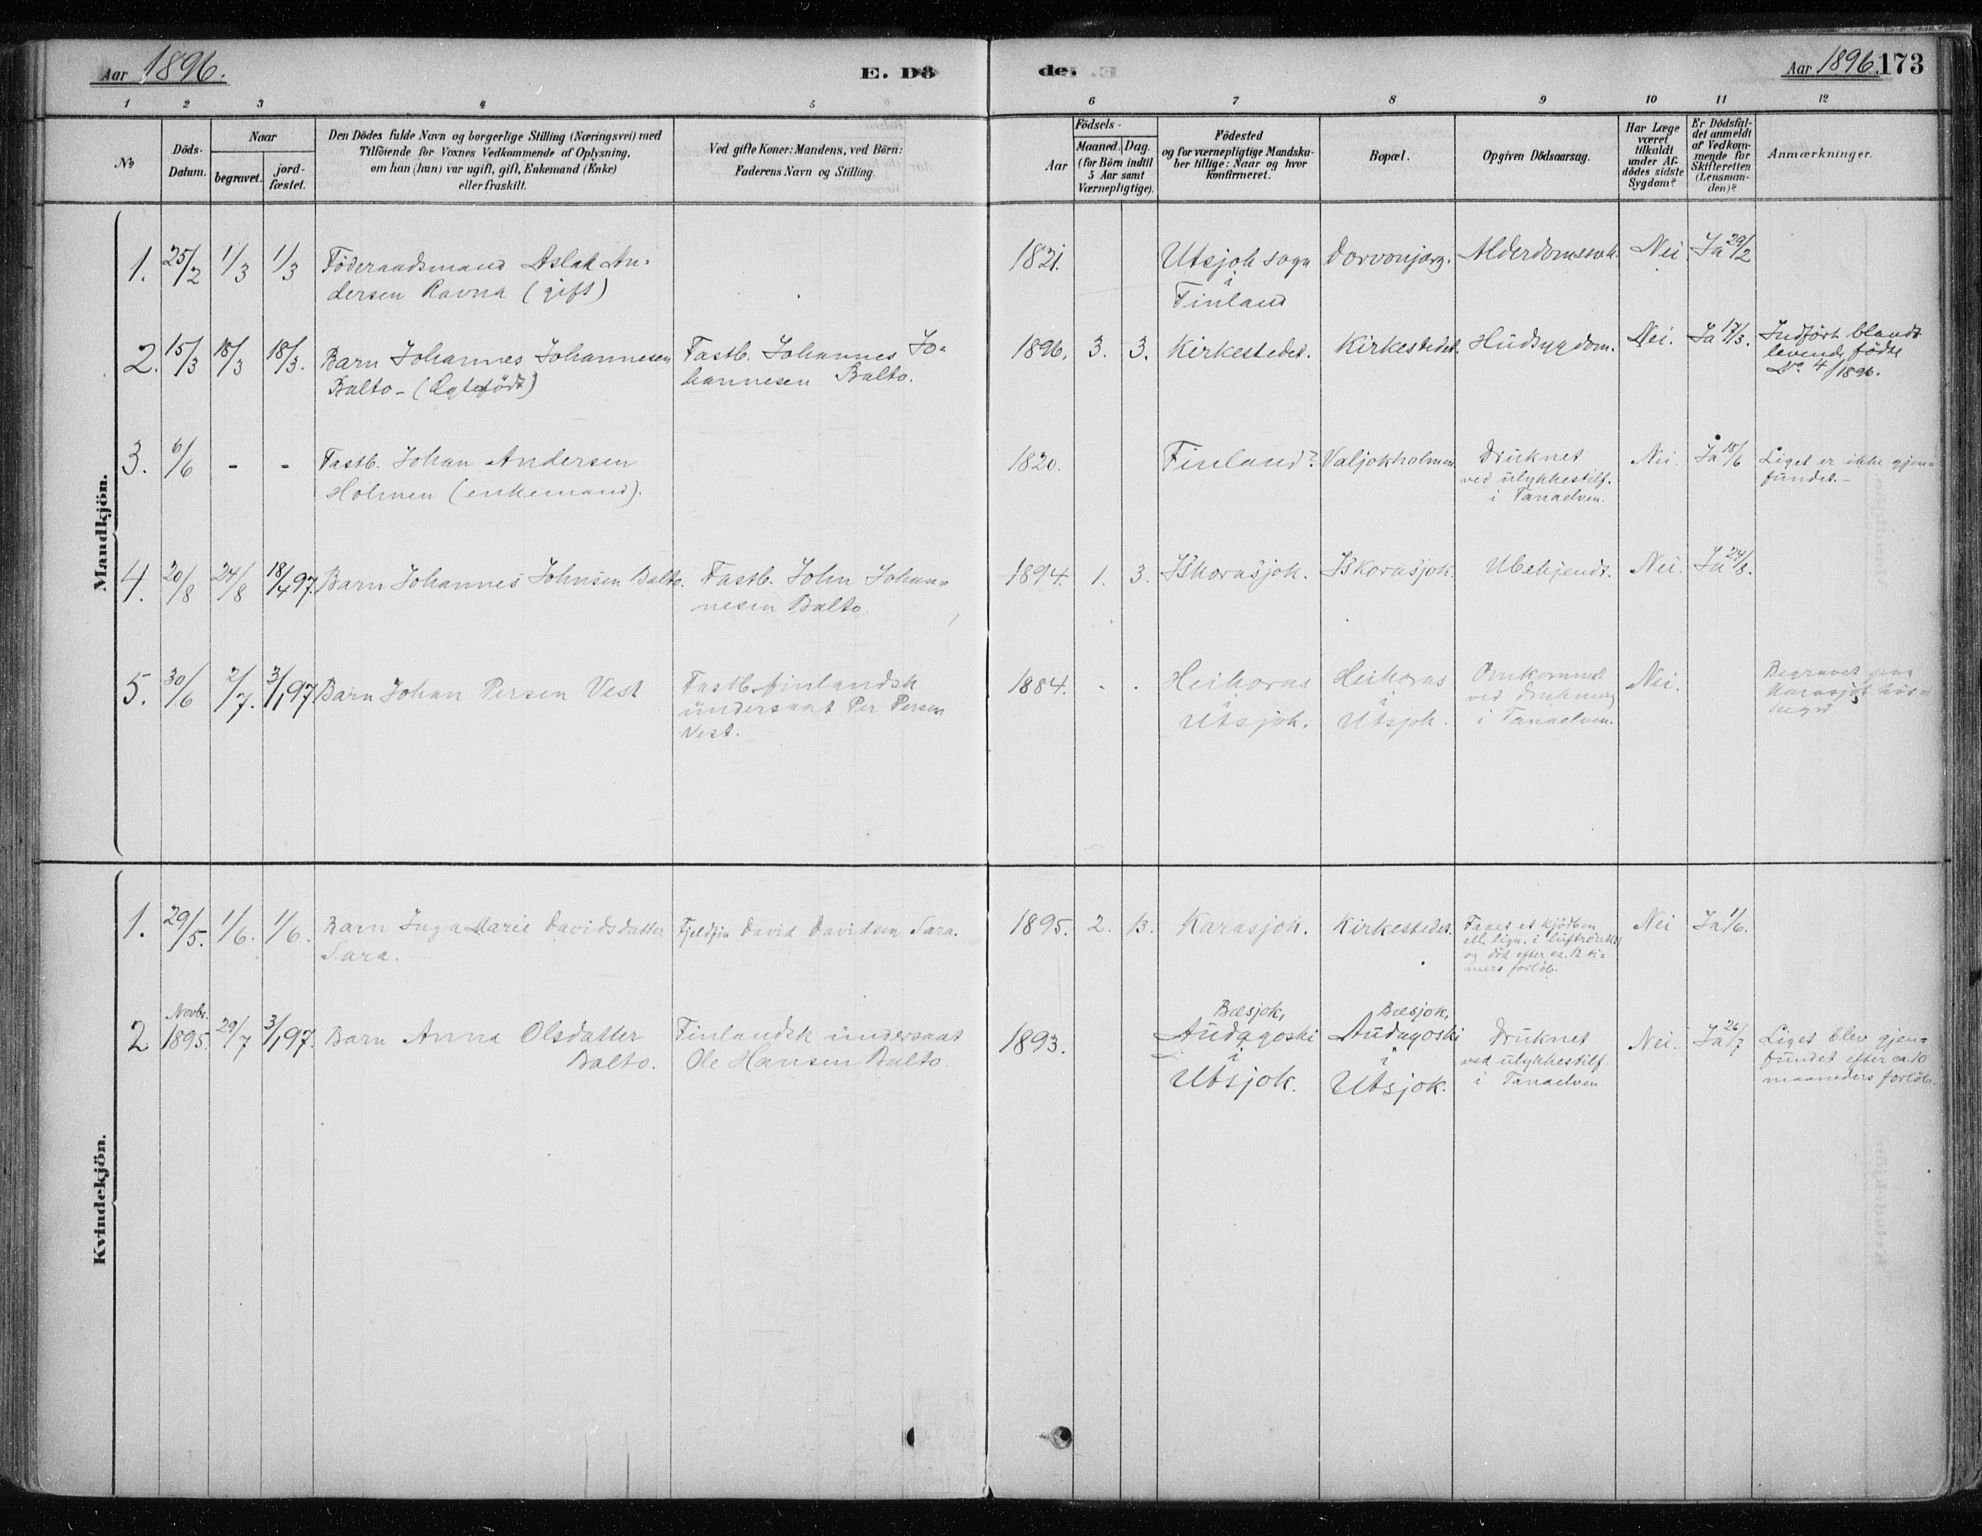 Aar 1896.
E. Dö
de.
Aar 1896. 173
1 2 3 4 5 6 7 8 9 10 11 12
No
Döds-
Datum.
Naar
begravet.
jord-
fæstet.
Den Dödes fulde Navn og borgerlige Stilling (Næringsvei) med
Tilföiende for Voxnes Vedkommende af Oplysning,
om han (hun) var ugift, gift, Enkemand (Enke)
eller fraskilt.
Ved gifte Koner: Mandens, ved Börn:
Faderens Navn og Stilling.
Födsels-
Aar
Maaned. Dag.
(for Börn indtil
5 Aar samt
Værnepligtige).
Födested
og for værnepligtige Mandska-
ber tillige: Naar og hvor
konfirmeret.
Bopæl.
Opgiven Dödsaarsag.
Har Læge
været
tilkaldt
under Af-
dödes sidste
Sygdom?
Er Dödsfal-
det anmeldt
af Vedkom-
mende for
Skifteretten
(Lensman-
den)?
Anmærkninger.
Mandkjön.
1. 25/2 1/3 1/3
Föderaadsmand Aslak An-
dersen Ravna (gift)
1821.
Utsjok sogn
i
Finland
Dorvonjarg.
Alderdomssvak.
Nei
Ja 29/2
2. 15/3 18/3 18/3.
Barn Johannes Johannesen
Balto - (Ægtefödt)
Fastb. Johannes Jo-
hannesen Balto.
1896. 3. 3.
Kirkestedet.
Kirkestedet.
Hudsygdom.
Nei.
Ja 17/3.
Indført blandt
levende fødte
No. 4/1896.
3. 6/6 - -
Fastb. Johan Andersen
Holmen (enkemand).
1820.
Finland?
Valjokholmen
Druknet
ved ulykkestilf.
i Tanaelven.
Nei.
Ja 18/6
Liget er ikke gjen-
fundet. -
4. 20/8 24/8 18/4 97.
Barn Johannes Johnsen Balto.
Fastb. John Johan-
nesen Balto.
1894. 1. 3.
Iskorasjok.
Iskorasjok.
Ubekjendt.
Nei.
Ja 24/8.
5. 30/6 2/7. 3/1 97
Barn Johan Persen Vest
Fastb. finlandsk
undersaat Per Persen
Vest.
1884. . .
Heikoras
i
Utsjok.
Heikoras
i
Utsjok.
Omkommet
ved drukning
i Tanaelven.
Nei.
Begravet paa
Karasjok
Kvindekjön.
1. 29/5. 1/6. 1/6.
Barn Inga Marie Davidsdatter
Sara.
Fjeldfin David Davidsen Sara.
1895. 2. 13.
Karasjok.
Kirkestedet.
Faaet et kjødben
ell. lign. i luftröret
og död efter ca. 12 ti-
mers forløb.
Nei
Ja 1/6.
2 Novbr. 1895. 29/7 3/1 97.
Barn Anna Olsdatter
Balto.
Finlandsk undersaat
Ole Hansen Balto.
1893.
Bæsjok,
Audagoski
i
Utsjok.
Bæsjok,
Audagoski
i
Utsjok.
Druknet
ved ulykkestilf.
i Tanaelven.
Nei.
Ja 26/7
Liget blev gjen-
fundet efter ca. 10
maaneders forløb.